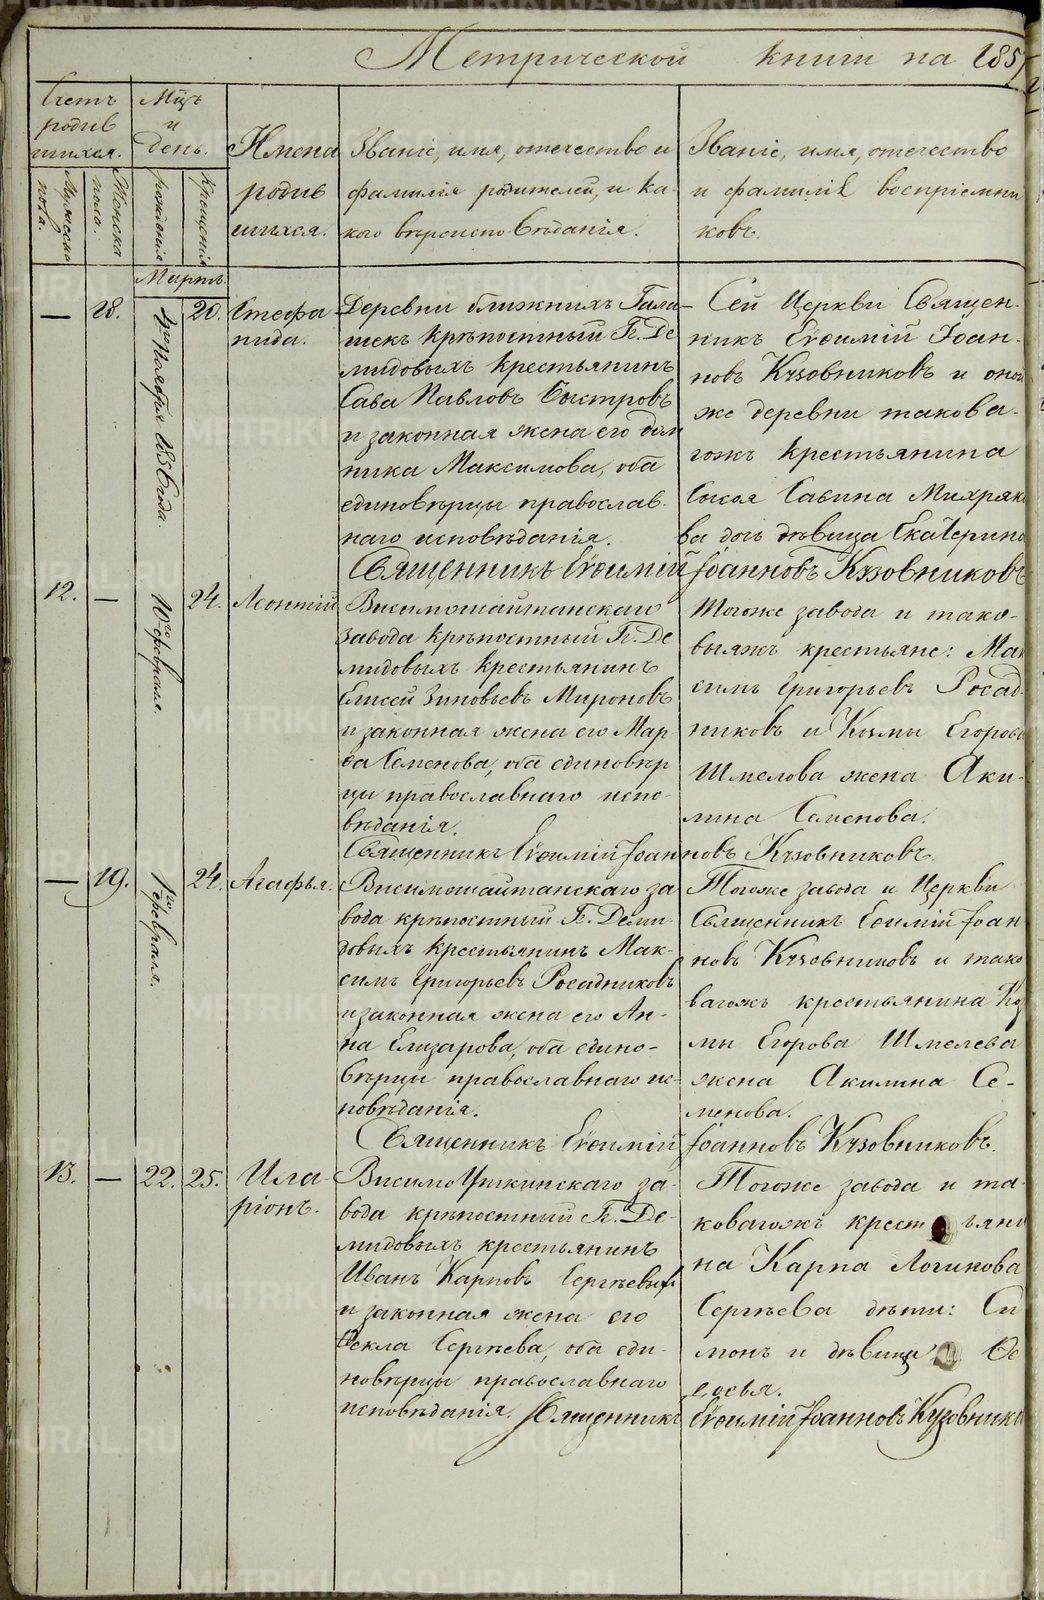 Метрической книги на 185
Счетъ родив шихся.
Мцъ и день.
Имена родив шихся.
Званіе, имя, отечество и фамилія родителей, и ка- кого вѣроисповѣданія.
Званіе, имя, отечество и фамилія воспріемни ковъ.
Мужеска пола.
Женска пола.
рожденія
Крещенія
Мартъ.
—
18.
9го Ноября 1856 года.
20.
Стефа нида.
Деревни ближнихъ Гала-
шекъ крѣпостный Гг. Де
мидовыхъ крестьянинъ
Сава Павловъ Быстровъ
и законная жена его Дом
ника Максимова, оба
единовѣрцы православ-
наго исповѣданія.
Сей Церкви Священ-
никъ Евѳимій Іоан-
новъ Кузовниковъ и оной
же деревни такова-
гожъ крестьянина
Савина
ва дочь дѣвица Екатерина
Священникъ Евѳимій Іоанновъ Кузовниковъ
12.
—
10го февраля.
24.
Леонтій
Висимошайтанскаго
завода крѣпостный Гг. Де
мидовыхъ крестьянинъ
Елисей Зиновьевъ Мироновъ
и законная жена его Мар
ѳа Семенова, оба единовѣр
цы православнаго испо-
вѣданія.
Тогоже завода и тако-
выяжъ крестьяне: Мак
симъ Григорьевъ Росад-
никовъ и Козмы Егорова
Шмелова жена Аки-
лина Семенова.
Священникъ Евѳимій Іоанновъ Кузовниковъ.
—
19.
1го февраля.
24.
Агафья.
Висимошайтанскаго за
вода крѣпостный Гг. Деми-
довыхъ крестьянинъ Мак-
симъ Григорьевъ Росадниковъ
и законная жена его Ан-
на Елизарова, оба едино-
вѣрцы православнаго ис-
повѣданія.
Тогоже завода и Церкви
Священникъ Евѳимій Іоан
новъ Кузовниковъ и тако
вагожъ крестьянина Коз
мы Егорова Шмелева
жена Акилина Се-
менова.
Священникъ Евѳимій Іоанновъ Кузовниковъ.
13.
—
22.
25.
Ила- ріонъ.
ВисимоУткинскаго за-
вода крѣпостный Гг. Де-
мидовыхъ крестьянинъ
Иванъ Карповъ Сергѣевыхъ
и законная жена его
Ѳекла Сергѣева, оба еди-
новѣрцы православнаго
исповѣданія.
Тогоже завода и та-
ковагожъ крестьяни
на Карпа Логинова
Сергѣева дѣти: Си
монъ и дѣвица Ѳе
досья.
Священникъ Евѳимій Іоанновъ Кузовников